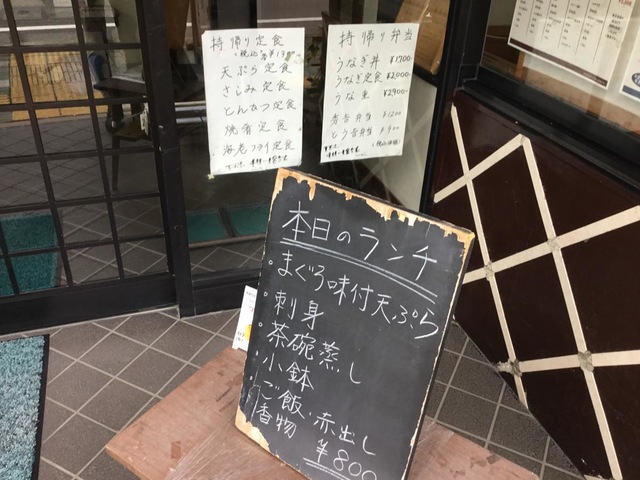 持帰り定食
天ぷら定食
さしみ定食
とんかつ定食
焼肴定食
海老フライ定食
持帰り弁当
うなぎ丼 ¥1700
うなぎ定食 ¥2,000
うな重 ¥2900
弁当 ¥1200
弁当 ¥900
本日のランチ
・まぐろ味付天ぷら
・刺身
・茶碗蒸し
・小鉢
・ご飯・赤出し
・香物
¥800